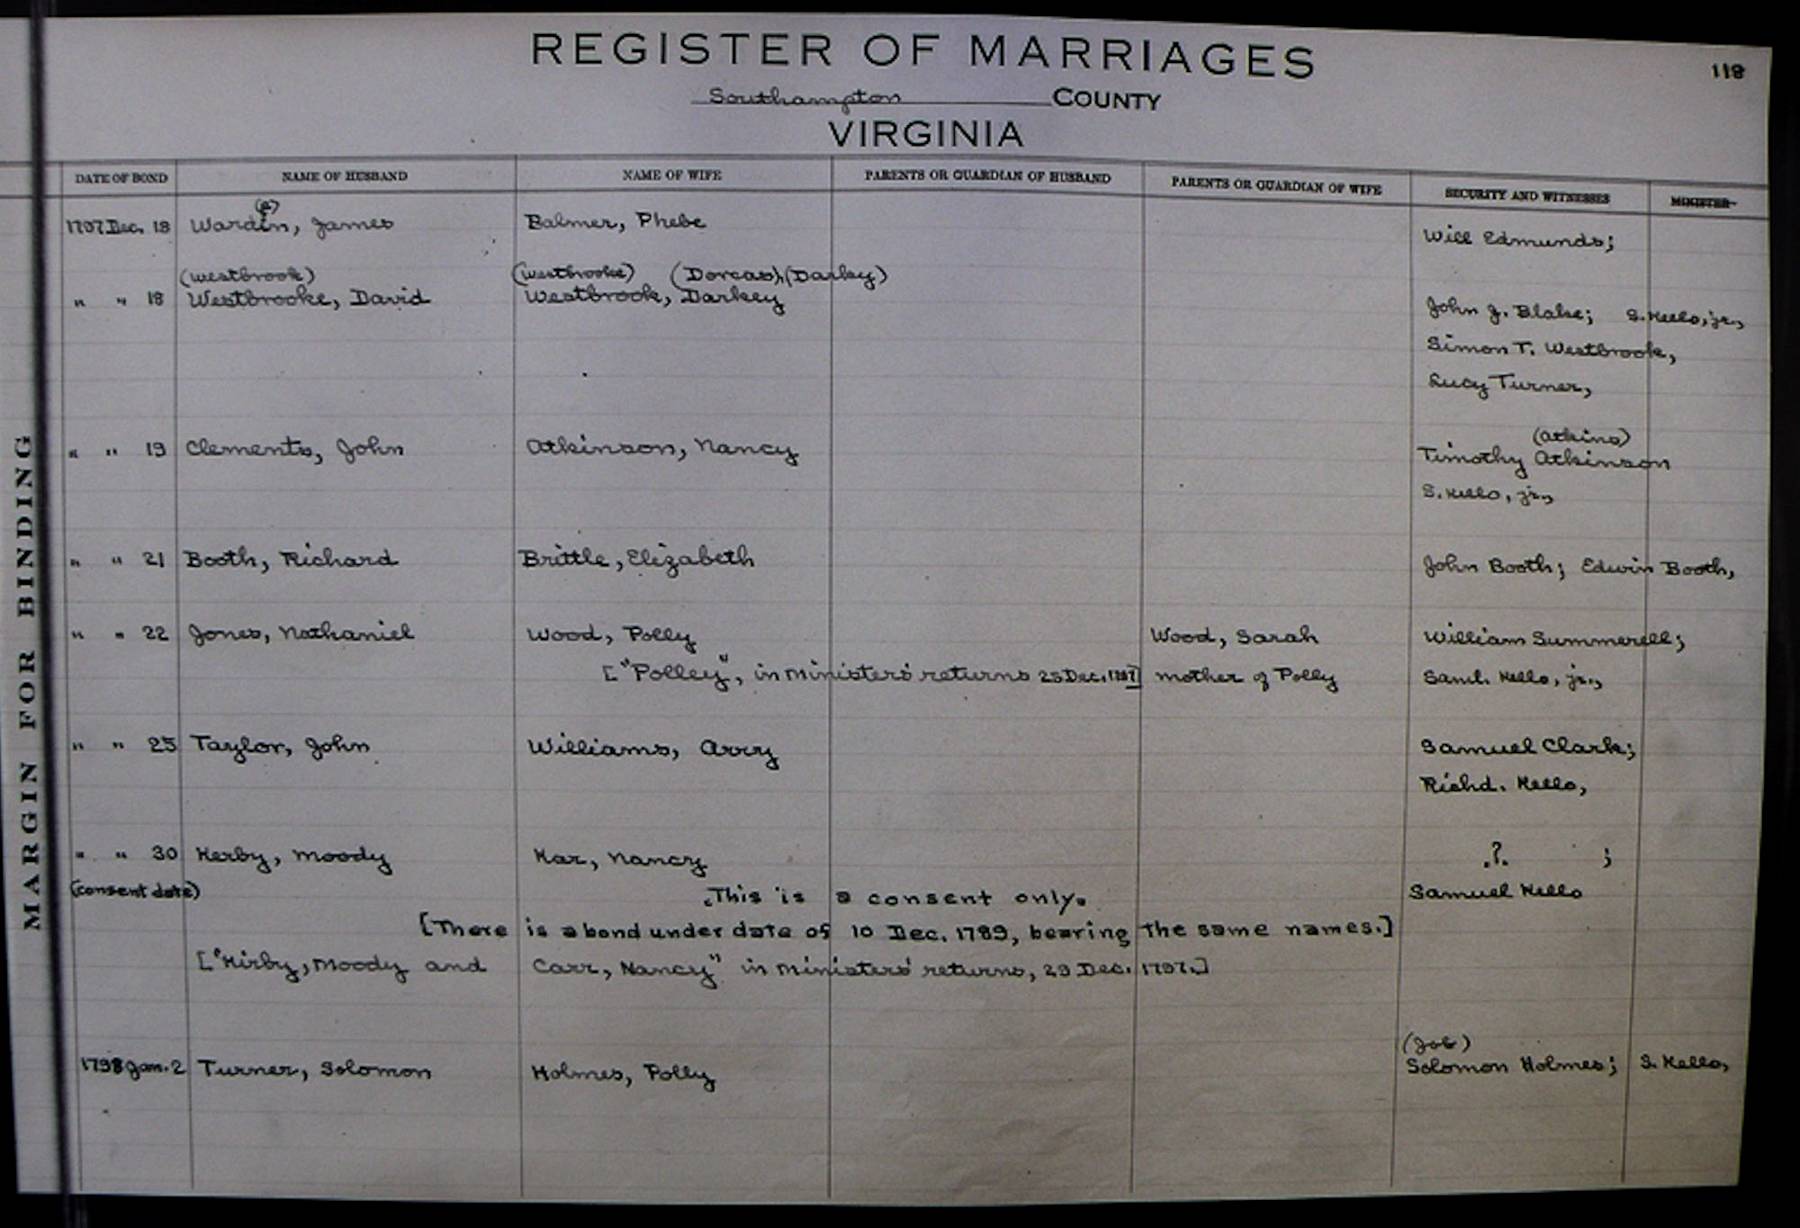 REGISTER OF MARRIAGES
118
Southampton COUNTY
VIRGINIA
DATE OF BOND NAME OF HUSBAND NAME OF WIFE PARENTS OR GUARDIAN OF HUSBAND PARENTS OR GUARDIAN OF WIFE SECURITY AND WITNESSES MINISTER
(e)
1797 Dec. 18 Wardin, James Balmer, Phebe Will Edmunds;
(Westbrook) (Westbrooke) (Dorcas), (Darley)
" " 18 Westbrooke, David Westbrook, Darkey John J. Blake; S. Kello, jr.,
Simon T. Westbrook,
Lucy Turner,
(Atkins)
" " 19 Clements, John Atkinson, Nancy Timothy Atkinson
S. Kello, jr.,
" " 21 Booth, Richard Brittle, Elizabeth John Booth; Edwin Booth,
" " 22 Jones, Nathaniel Wood, Polly Wood, Sarah William Summerell;
["Polley", in ministers' returns 25 Dec. 1797] mother of Polly Saml. Kello, jr.,
" " 25 Taylor, John Williams, Avvy Samuel Clark;
Richd. Kello,
" " 30 Kerby, Moody Kar, Nancy ? ;
(consent date) This is a consent only. Samuel Kello
[There is a bond under date of 10 Dec. 1789, bearing the same names.]
["Kirby, Moody and Carr, Nancy" in ministers' returns, 29 Dec. 1797.]
(Job)
1798 Jan. 2 Turner, Solomon Holmes, Polly Solomon Holmes; S. Kello,
MARGIN FOR BINDING